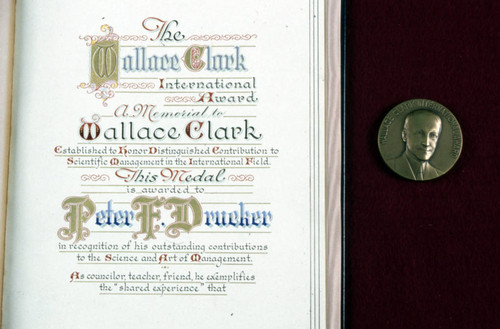 The
Wallace Clark
International
Award
A Memorial to
Wallace Clark
Established to Honor Distinguished Contribution to
Scientific Management in the International Field.
This Medal
is awarded to
Peter F. Drucker
in recognition of his outstanding contributions
to the Science and Art of Management.
As councilor, teacher, friend, he exemplifies
the "shared experience" that